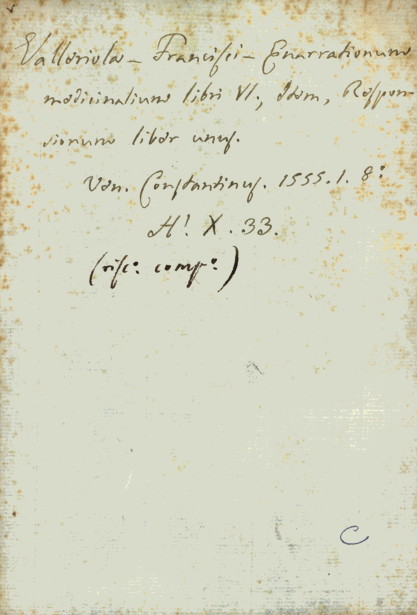 Valleriolæ - Francisci - Enarrationum
medicinalium libri VI., Idem, Respon-
sionum liber unus.
Ven. Constantinus. 1555. 1. 8.º
A! X. 33.
(risc.º comp.º)
C